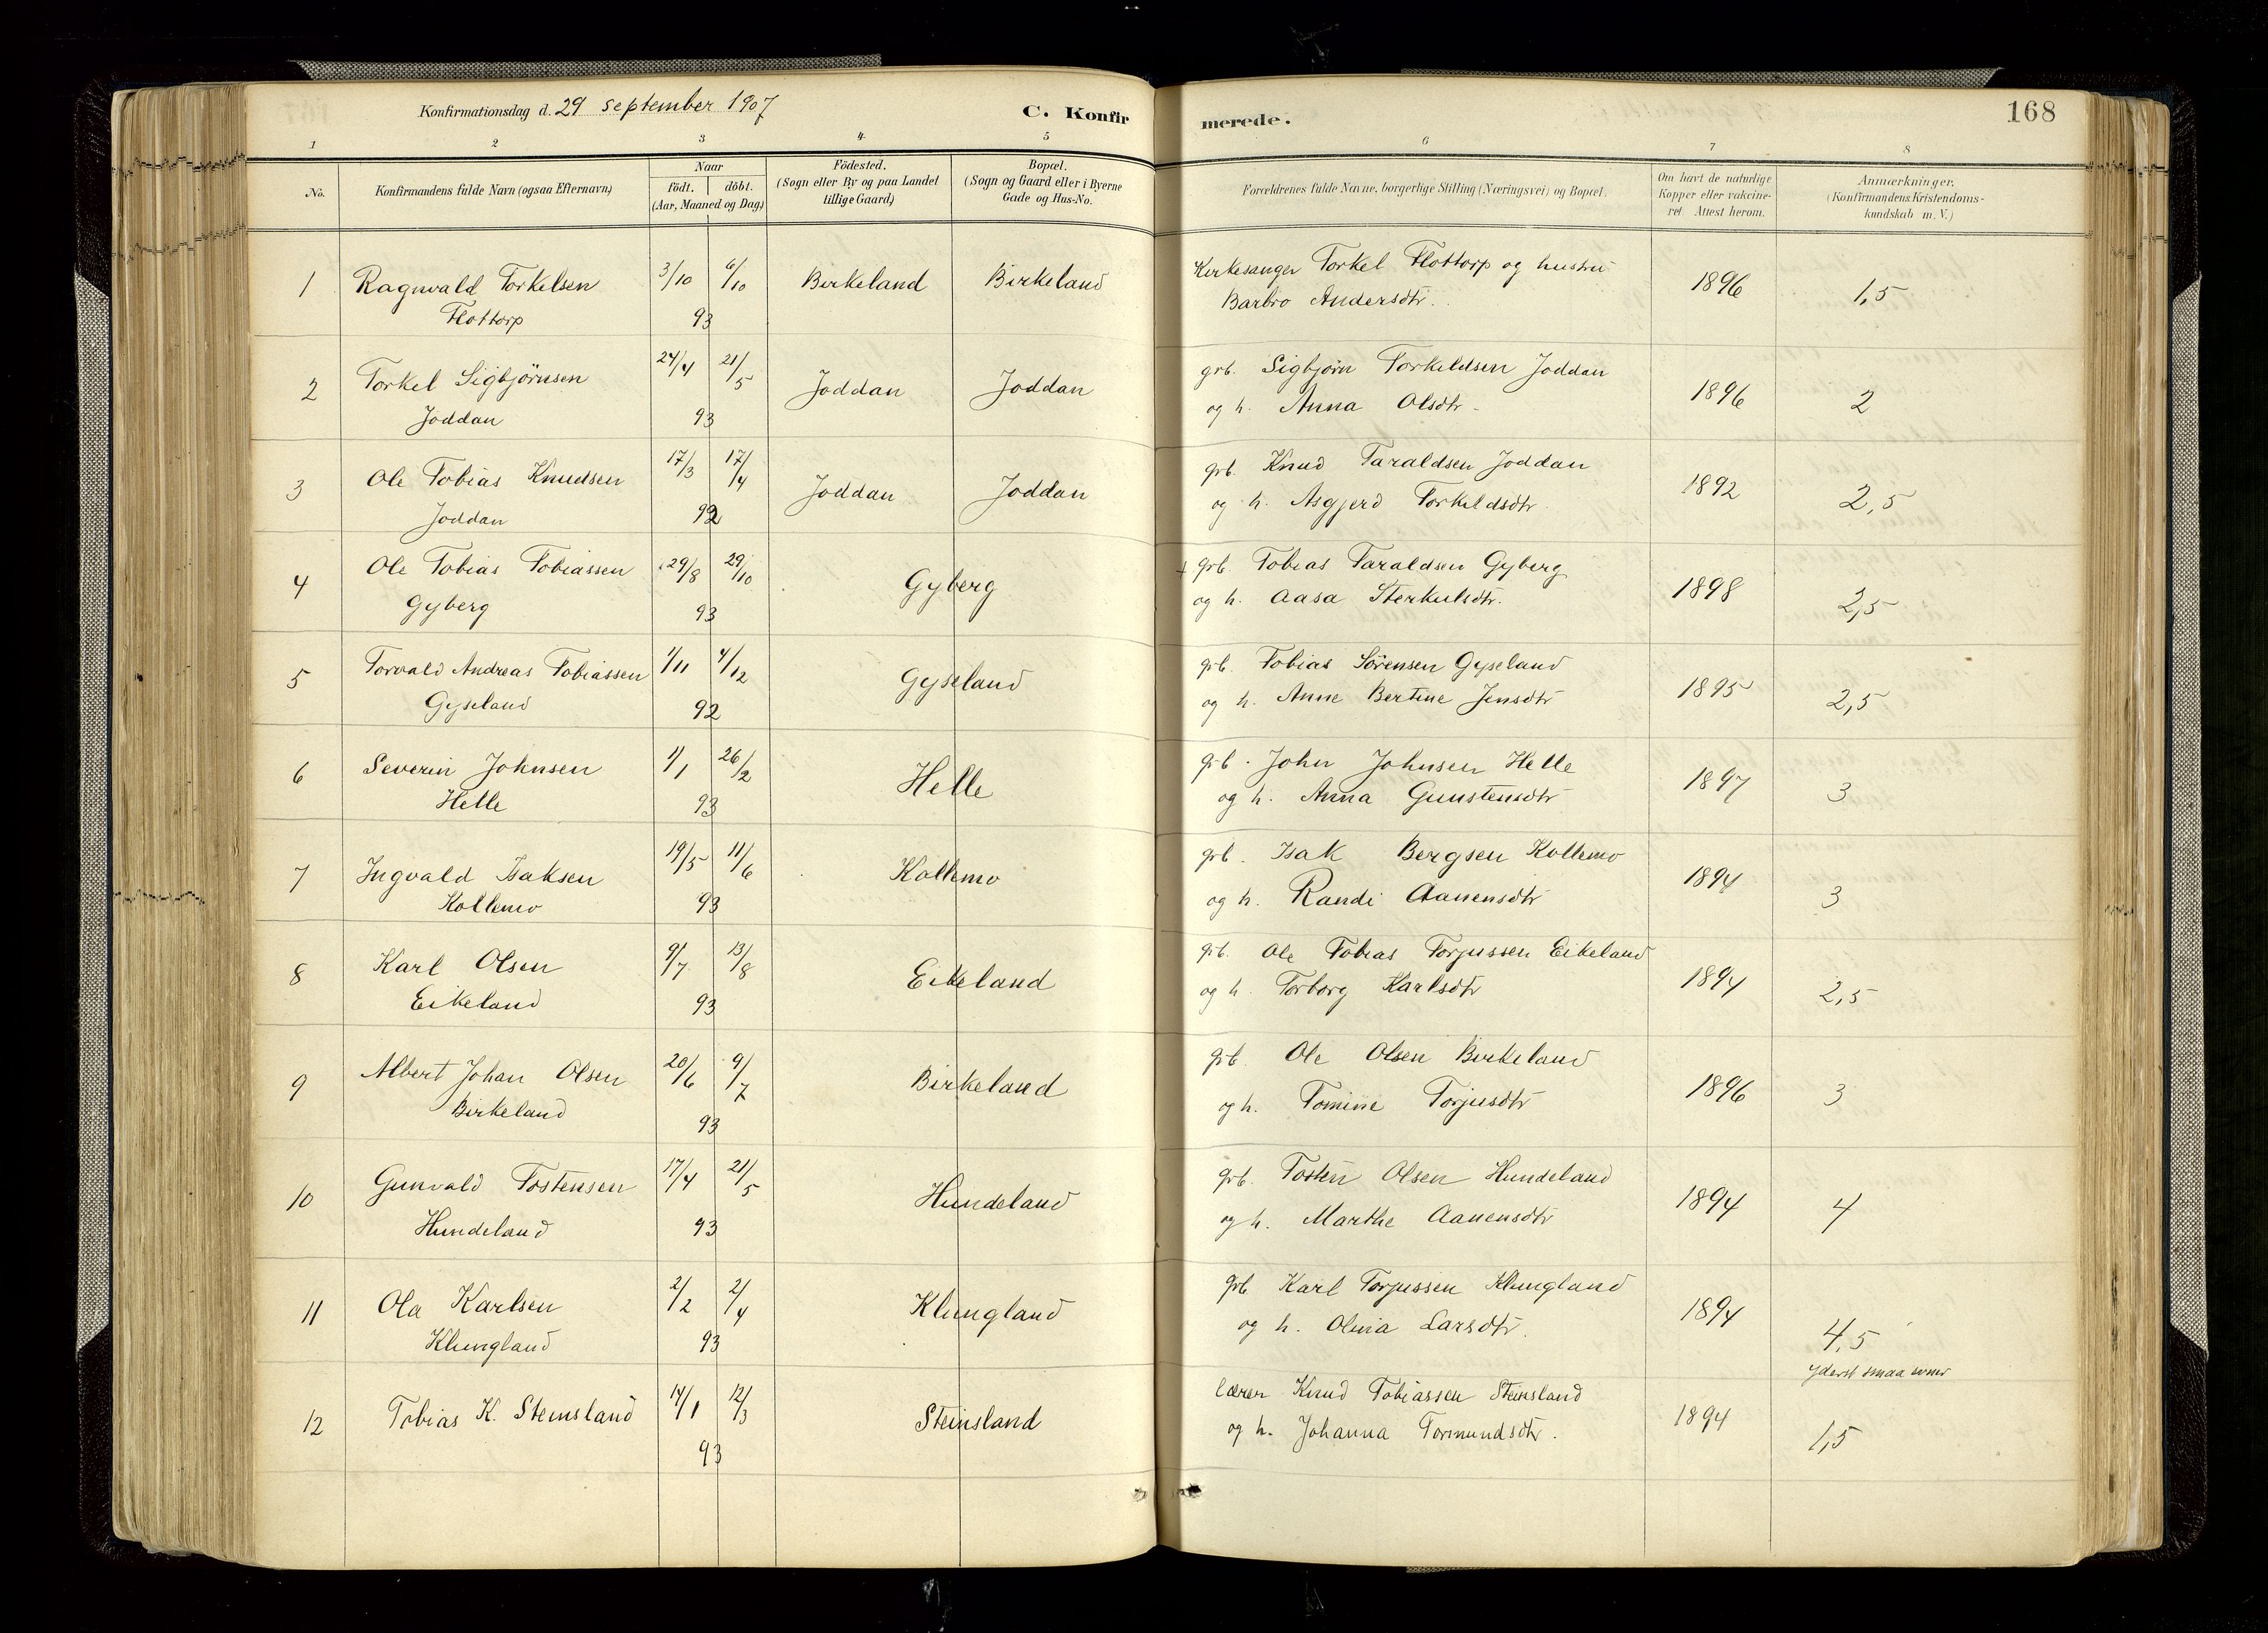 Konfirmationsdag d. 29 september 1907
C. Konfirmerede.
168
1 2 3 4 5 6 7 8
No.
Konfirmandens fulde Navn (ogsaa Efternavn)
Naar
födt. döbt.
(Aar, Maaned og Dag)
Födested.
(Sogn eller By og paa Landet
tillige Gaard)
Bopæl.
(Sogn og Gaard eller i Byerne
Gade og Hus-No.
Forældrenes fulde Navne, borgerlige Stilling (Næringsvei) og Bopæl.
Om havt de naturlige
Kopper eller vakcine-
ret. Attest herom.
Anmærkninger.
(Konfirmandens Kristendoms-
kundskab m. V.)
1 Ragnvald Torkelsen 3/10 6/10 Birkeland Birkeland Kirkesanger Torkel Flottorp og hustru 1896 1,5
Flottorp 93 Barbro Andersdtr.
2 Torkel Sigbjörnsen 24/4 21/5 Joddan Joddan grb. Sigbjörn Torkeldsen Joddan 1896 2
Joddan 93 og h. Anna Olsdtr.
3 Ole Tobias Knudsen 17/3 17/4 Joddan Joddan grb. Knud Taraldsen Joddan 1892 2,5
Joddan 92 og h. Asgjerd Torkeldsdtr
4 Ole Tobias Tobiassen 29/8 29/10 Gyberg + grb. Tobias Taraldsen Gyberg 1898 2,5
Gyberg 93 og h. Aasa Sterkulsdtr.
5 Torvald Andreas Tobiassen 1/11 4/12 Gyseland grb. Tobias Sörensen Gyseland 1895 2,5
Gyseland 92 og h. Anne Bertine Jensdtr
6 Severin Johnsen 1/1 26/2 Helle grb. John Johnsen Helle 1897 3
Helle 93 og h. Anna Gunstensdtr
7 Ingvald Isaksen 19/5 11/6 Kollemo grb. Isak Bergsen Kollemo 1894 3
Kollemo 93 og h. Randi Aanensdtr
8 Karl Olsen 9/7 13/8 Eikeland grb. Ole Tobias Torjussen Eikeland 1894 2,5
Eikeland 93 og h. Torborg Karlsdtr
9 Albert Johan Olsen 20/6 9/7 Birkeland grb. Ole Olsen Birkeland 1896 3
Birkeland 93 og h. Tomine Torjusdtr
10 Gunvald Tostensen 17/4 21/5 Hundeland grb. Tosten Olsen Hundeland 1894 4
Hundeland 93 og h. Marthe Aanensdtr
11 Ola Karlsen 2/2 2/4 Klungland grb Karl Torjussen Klungland 1894 4,5
Klungland 93 og h. Olina Larsdtr.
yderst smaa evner
12 Tobias K. Steinsland 14/1 12/3 Steinsland lærer Knud Tobiassen Steinsland 1894 1,5
93 og h. Johanna Tormundsdtr.